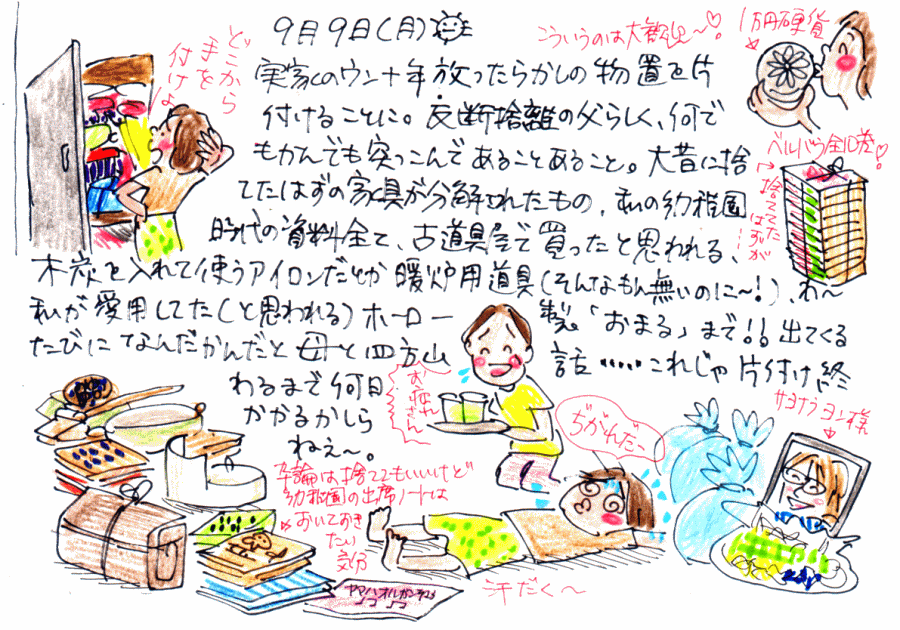 9月9日(月)
実家のウン十年放ったらかしの物置を片
付けることに。反断捨離の父らしく、何で
もかんでも突っこんであることあること。大昔に捨
てたはずの家具が分解されたもの、私の幼稚園
時代の資料全て、古道具屋で買ったと思われる、
木炭を入れて使うアイロンだとか暖炉用道具(そんなもん無いのに〜!)、わ〜
私が愛用してた(と思われる)ホーロー製「おまる」まで!!出てくる
たびになんだかんだと母と四方山話……これじゃ片付け終
わるまで何日
かかるかしら
ねぇ〜。
どこから
手を
付けよ
こういうのは大歓迎〜♡!
1万円硬貨
ベルばら全10巻!
捨ててた
はずが
お疲れさん〜
ぢがれんだ〜
サヨナラヨン様
卒論は捨ててもいいけど
幼稚園の出席ノートは
おいておき
たい
気分
ヤマハオルガン
汗だく〜